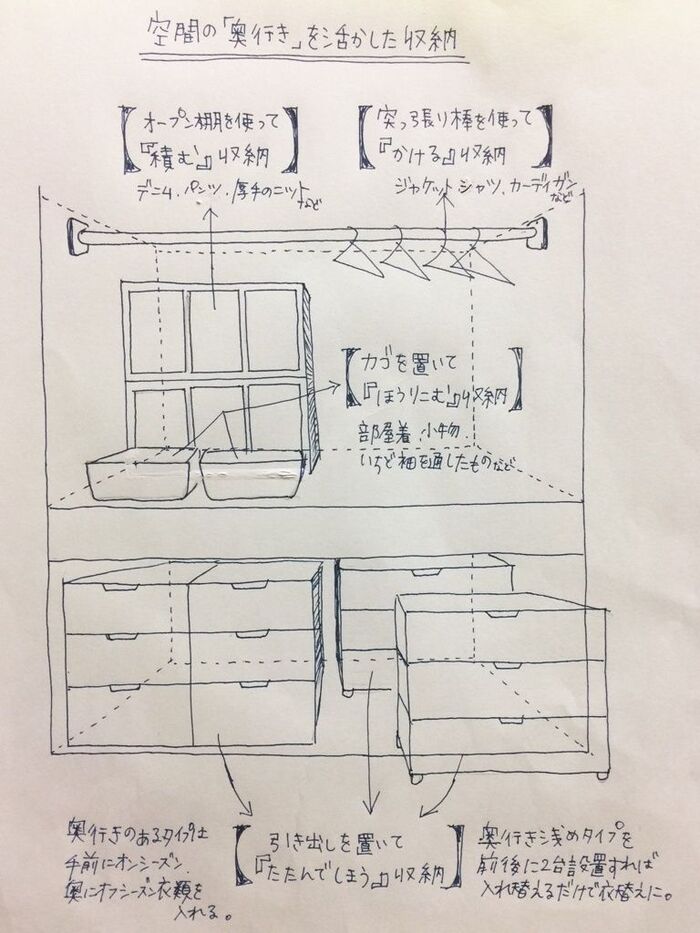 空間の「奥行き」を活かした収納
【オープン棚を使って
『積む』収納】
デニム、パンツ、厚手のニットなど
【突っ張り棒を使って
『かける』収納】
ジャケット、シャツ、カーディガンなど
【カゴを置いて
『ほうりこむ』収納】
部屋着、小物、
いちど袖を通したものなど
奥行きのあるタイプは
手前にオンシーズン、
奥にオフシーズン衣類を
入れる。
【引き出しを置いて
『たたんでしまう』収納】
奥行き浅めタイプを
前後に2台設置すれば
入れ替えるだけで衣替えに。